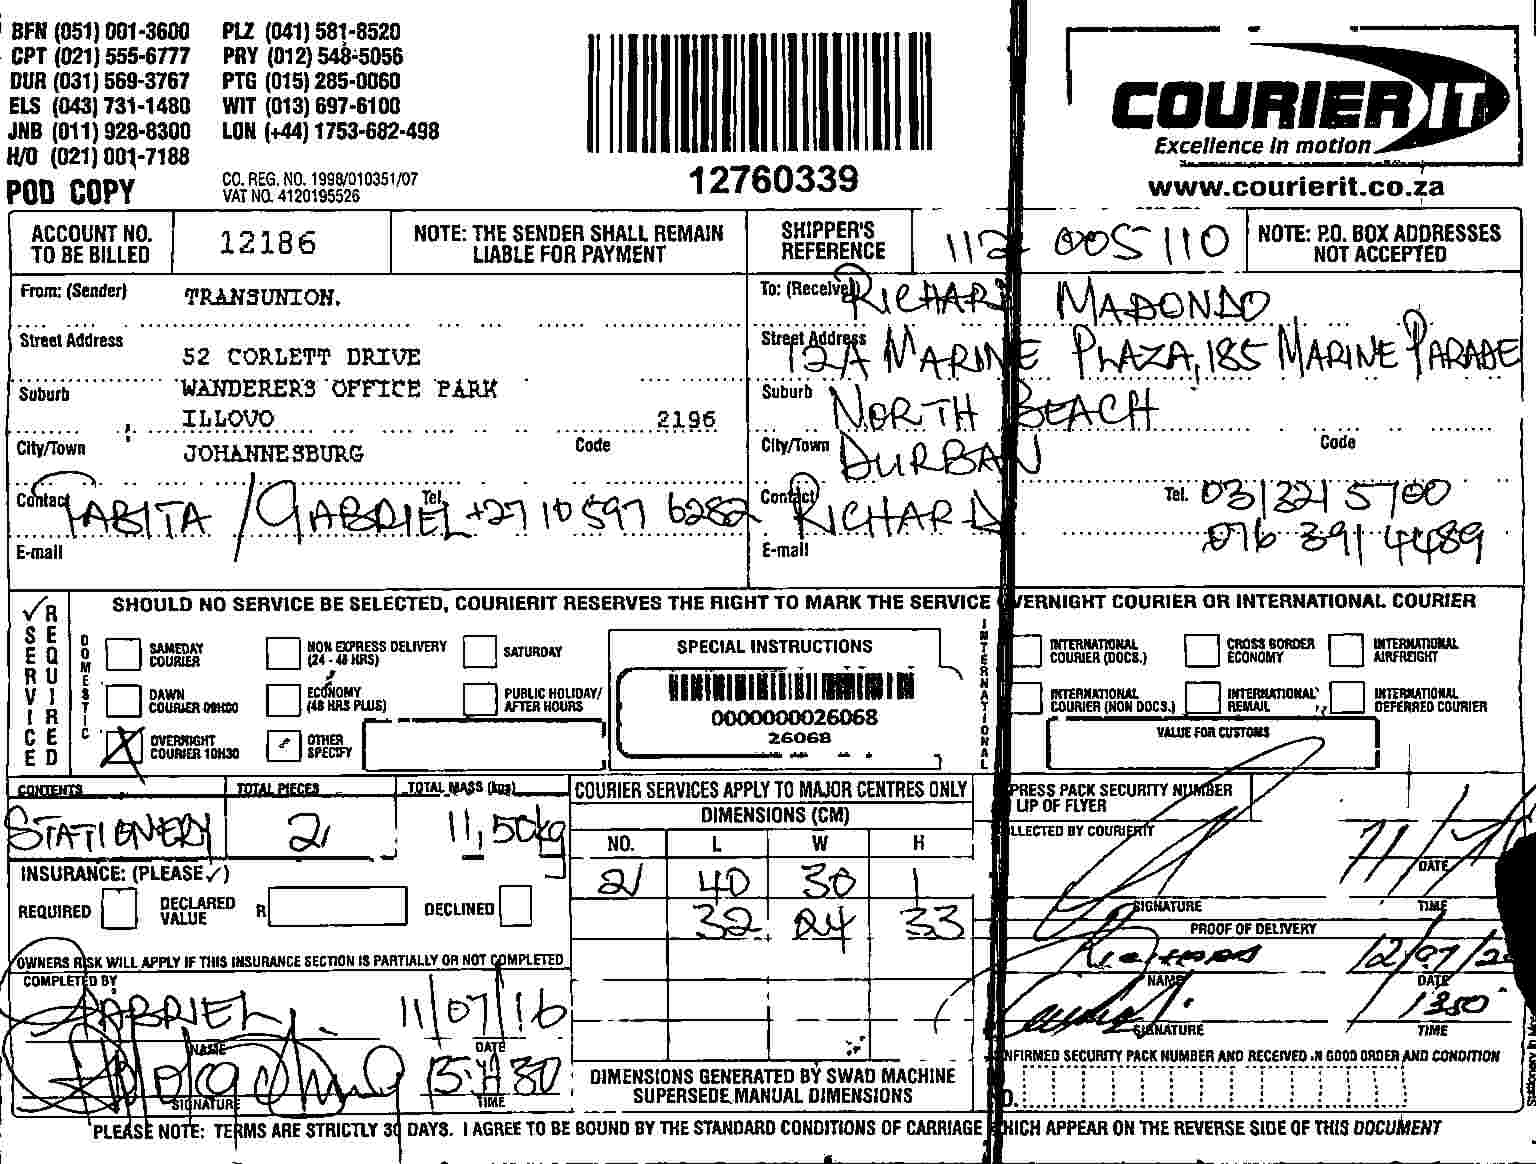 BFN (051) 001-3600 PLZ (041) 581-8520
CPT (021) 555-6777 PRY (012) 548-5056
DUR (031) 569-3767 PTG (015) 285-0060
ELS (043) 731-1480 WIT (013) 697-6100
JNB (011) 928-8300 LON (+44) 1753-682-498
H/O (021) 001-7188
POD COPY
CO. REG. NO. 1998/010351/07
VAT NO. 4120195526
12760339
COURIER IT
Excellence in motion
www.courierit.co.za
ACCOUNT NO. TO BE BILLED
12186
NOTE: THE SENDER SHALL REMAIN LIABLE FOR PAYMENT
SHIPPER'S REFERENCE
112 005110
NOTE: P.O. BOX ADDRESSES NOT ACCEPTED
From: (Sender) TRANSUNION.
Street Address
52 CORLETT DRIVE
Suburb WANDERERS OFFICE PARK
ILLOVO 2196
City/Town JOHANNESBURG Code
Contact TABITA / GABRIEL Tel. +27 10 597 6282
E-mail
To: (Receiver) RICHARD MADONDO
Street Address 12A MARINE PLAZA, 185 MARINE PARADE
Suburb NORTH BEACH
City/Town DURBAN Code
Contact RICHARD Tel. 031 321 5700
E-mail 076 391 4489
SERVICE REQUIRED
SHOULD NO SERVICE BE SELECTED, COURIERIT RESERVES THE RIGHT TO MARK THE SERVICE OVERNIGHT COURIER OR INTERNATIONAL COURIER
DOMESTIC
SAMEDAY COURIER
NON EXPRESS DELIVERY (24 - 48 HRS)
SATURDAY
DAWN COURIER 09H00
ECONOMY (48 HRS PLUS)
PUBLIC HOLIDAY/ AFTER HOURS
OVERNIGHT COURIER 10H30
OTHER SPECIFY
SPECIAL INSTRUCTIONS
0000000026068
26068
INTERNATIONAL
INTERNATIONAL COURIER (DOCS.)
CROSS BORDER ECONOMY
INTERNATIONAL AIRFREIGHT
INTERNATIONAL COURIER (NON DOCS.)
INTERNATIONAL REMAIL
INTERNATIONAL DEFERRED COURIER
VALUE FOR CUSTOMS
CONTENTS TOTAL PIECES TOTAL MASS (kgs)
STATIONERY 2 11,50kg
INSURANCE: (PLEASE ✓)
REQUIRED DECLARED VALUE R DECLINED
OWNERS RISK WILL APPLY IF THIS INSURANCE SECTION IS PARTIALLY OR NOT COMPLETED
COMPLETED BY
GABRIEL 11/07/16
NAME DATE
SIGNATURE TIME
COURIER SERVICES APPLY TO MAJOR CENTRES ONLY
DIMENSIONS (CM)
NO. L W H
2 40 30 1
32 24 33
DIMENSIONS GENERATED BY SWAD MACHINE
SUPERSEDE MANUAL DIMENSIONS
PRESS PACK SECURITY NUMBER
LIP OF FLYER
LLECTED BY COURIERIT
DATE
SIGNATURE TIME
PROOF OF DELIVERY
12/07/
NAME DATE
1350
SIGNATURE TIME
NFIRMED SECURITY PACK NUMBER AND RECEIVED IN GOOD ORDER AND CONDITION
PLEASE NOTE: TERMS ARE STRICTLY 30 DAYS. I AGREE TO BE BOUND BY THE STANDARD CONDITIONS OF CARRIAGE WHICH APPEAR ON THE REVERSE SIDE OF THIS DOCUMENT